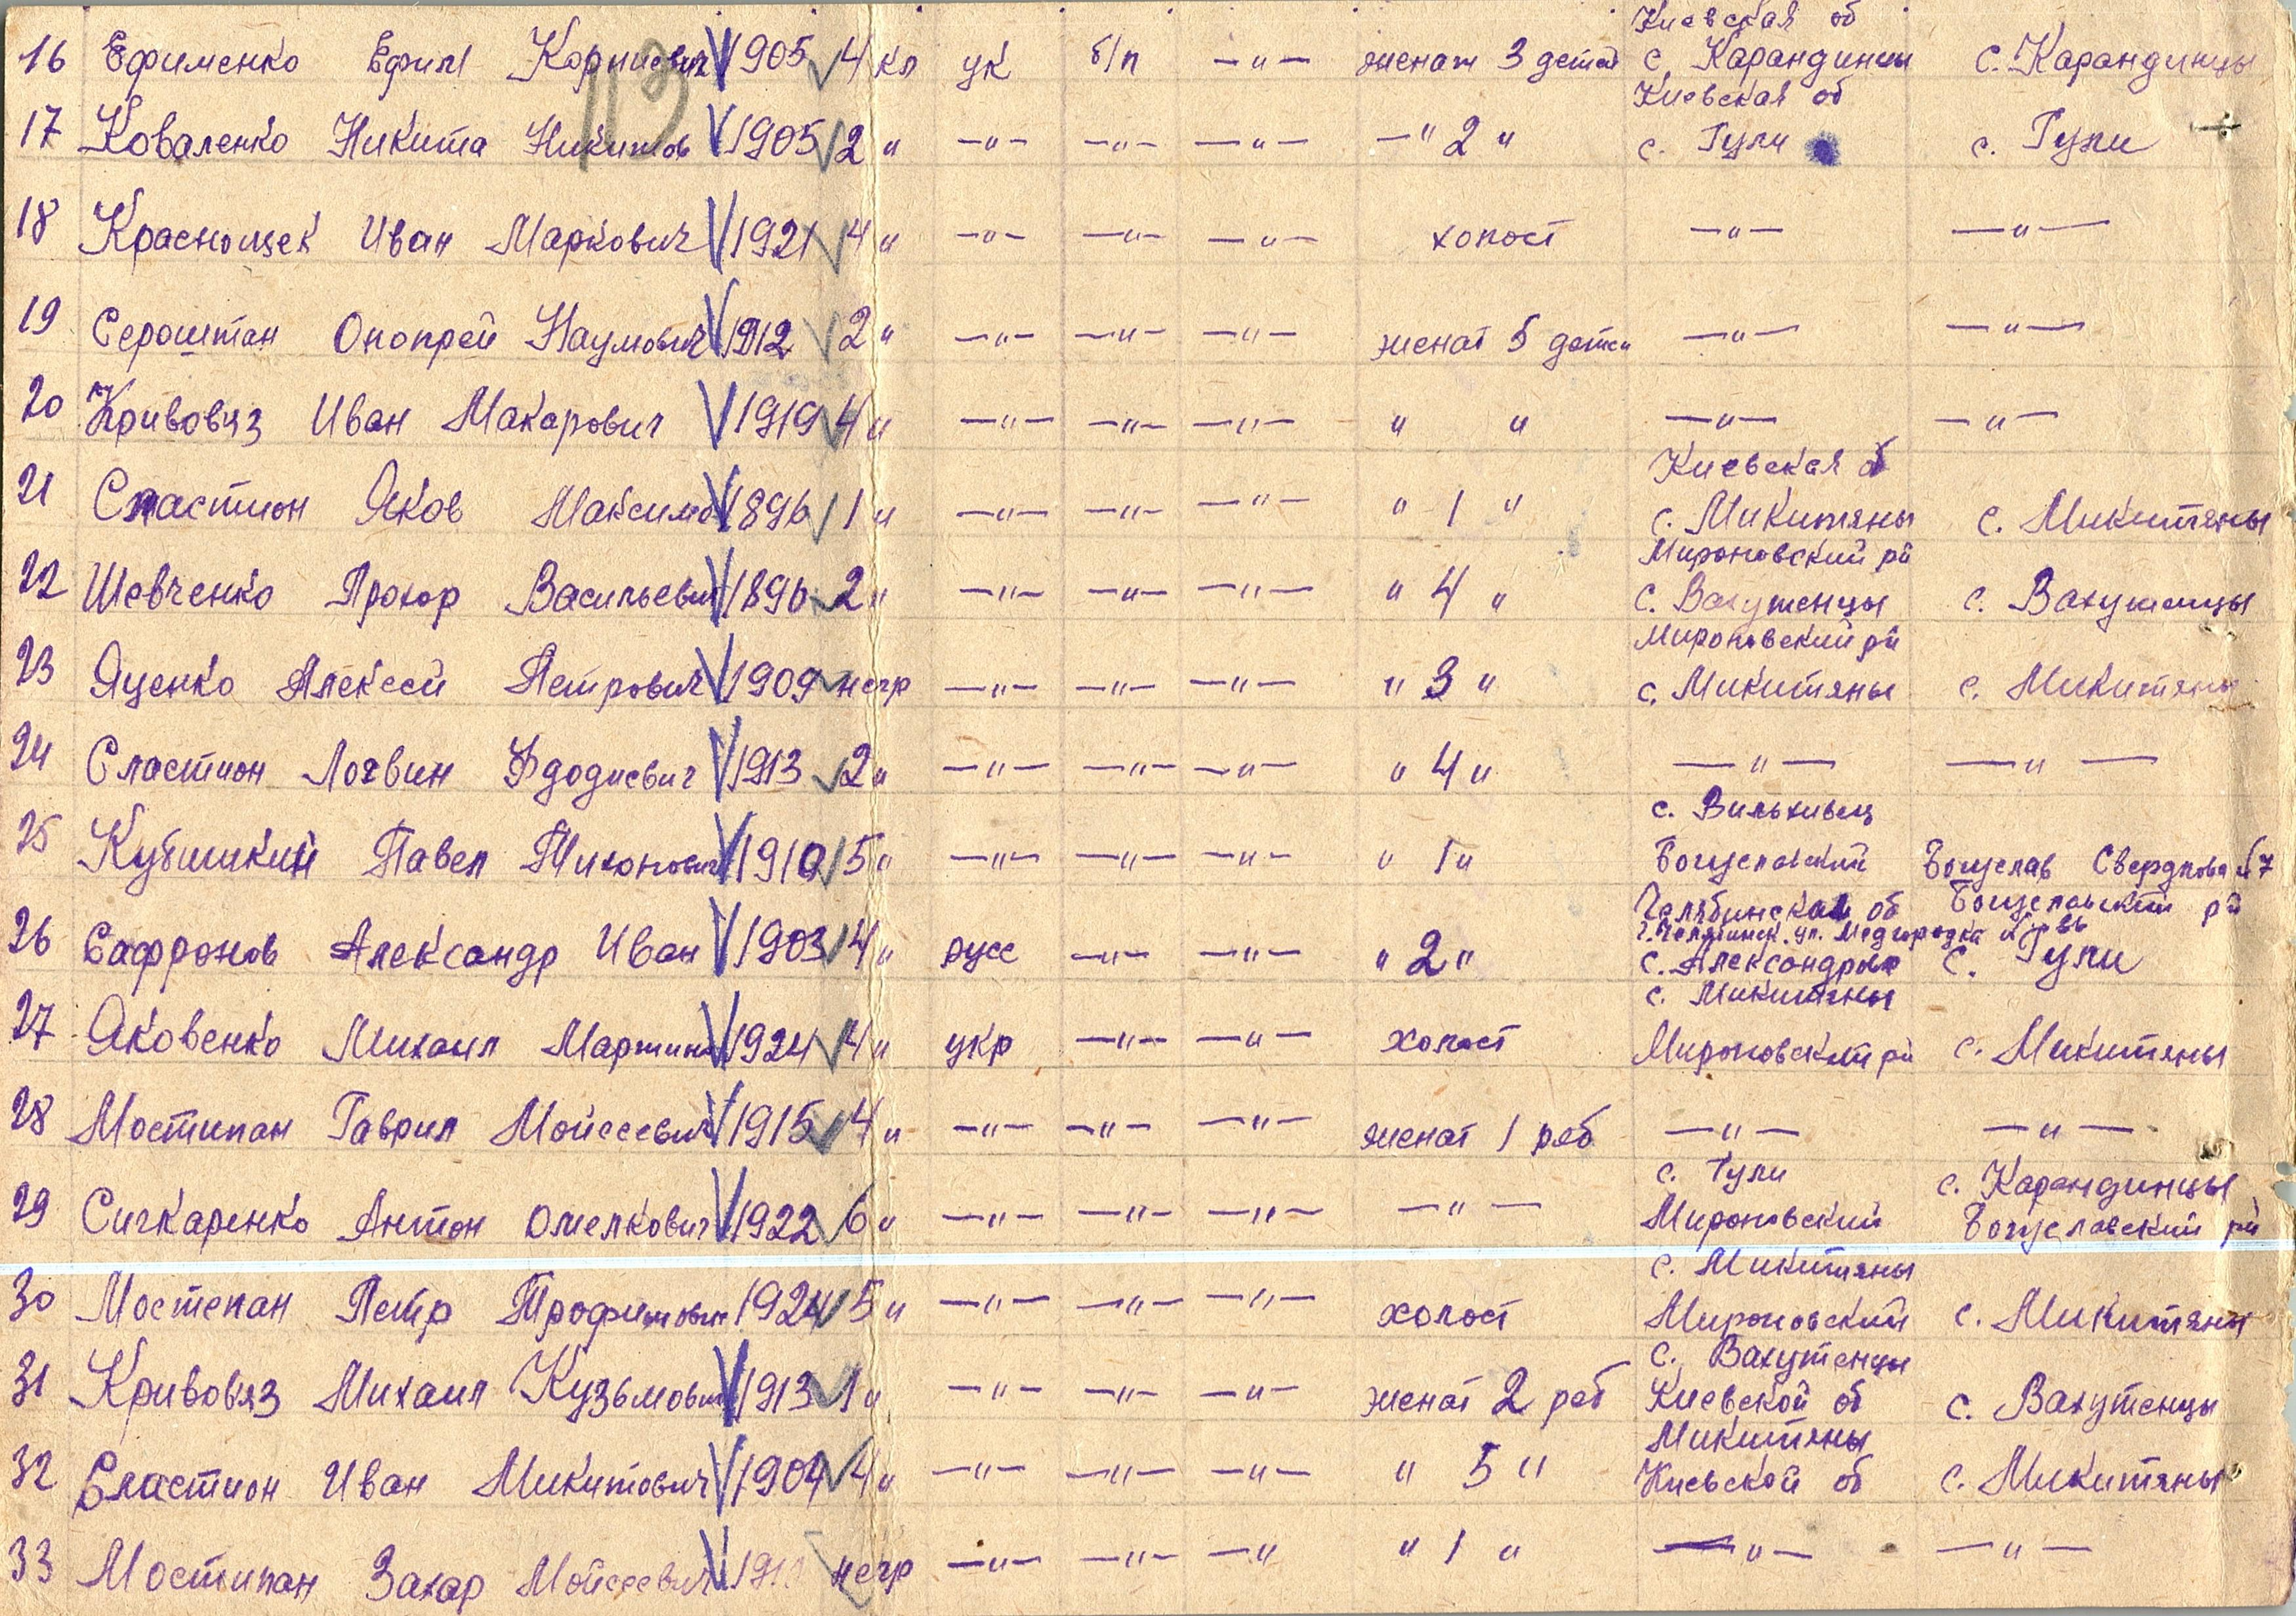 Киевская об
16 Ефименко Ефим Корниевич 1905 4 кл ук б/п —"— женат 3 детей с. Карандинцы с. Карандинцы
113
Киевская об
17 Коваленко Никита Никитов 1905 2 " —"— —"— —"— —" 2 " с. Гули с. Гули
18 Краснощек Иван Маркович 1921 4 " —"— —"— —"— холост —"— —"—
19 Сероштан Онопрей Наумович 1912 2 " —"— —"— —"— женат 5 детей —"— —"—
20 Кривовяз Иван Макарович 1919 4 " —"— —"— —"— " " —"— —"—
Киевская об
21 Сластион Яков Максимов 1896 1 " —"— —"— —"— " 1 " с. Микитяны с. Микитяны
Мироновский рй
22 Шевченко Прохор Васильевич 1896 2 " —"— —"— —"— " 4 " с. Вахутенцы с. Вахутенцы
Мироновский рй
23 Яценко Алексей Петрович 1909 негр —"— —"— —"— " 3 " с. Микитяны с. Микитяны
24 Сластион Логвин Фдодиевич 1913 2 " —"— —"— —"— " 4 " —"— —"—
с. Вильхивец
25 Кубышкин Павел Тихонович 1910 5 " —"— —"— —"— " 1 " Богуславский Богуслав Свердлова 7
Челябинская об Богуславский рй
г. Челябинск. ул. Медгородка
26 Сафронов Александр Иван 1903 4 " русс —"— —"— " 2 " с. Александров с. Гули
с. Микитяны
27 Яковенко Михаил Мартинов 1924 4 " укр —"— —"— холост Мироновский рй с. Микитяны
28 Мостипан Гаврил Мойсеевич 1915 4 " —"— —"— —"— женат 1 реб —"— —"—
с. Гули с. Карандинцы
29 Сичкаренко Антон Омелкович 1922 6 " —"— —"— —"— —"— Мироновский Богуславский рй
с. Микитяны
30 Мостепан Петр Трофимович 1924 5 " —"— —"— —"— холост Мироновский с. Микитяны
с. Вахутенцы
31 Кривовяз Михаил Кузьмович 1913 1 " —"— —"— —"— женат 2 реб Киевской об с. Вахутенцы
Микитяны
32 Сластион Иван Микитович 1904 4 " —"— —"— —"— " 5 " Киевской об с. Микитяны
33 Мостипан Захар Мойсеевич негр —"— —"— —" " 1 " —"— —"—